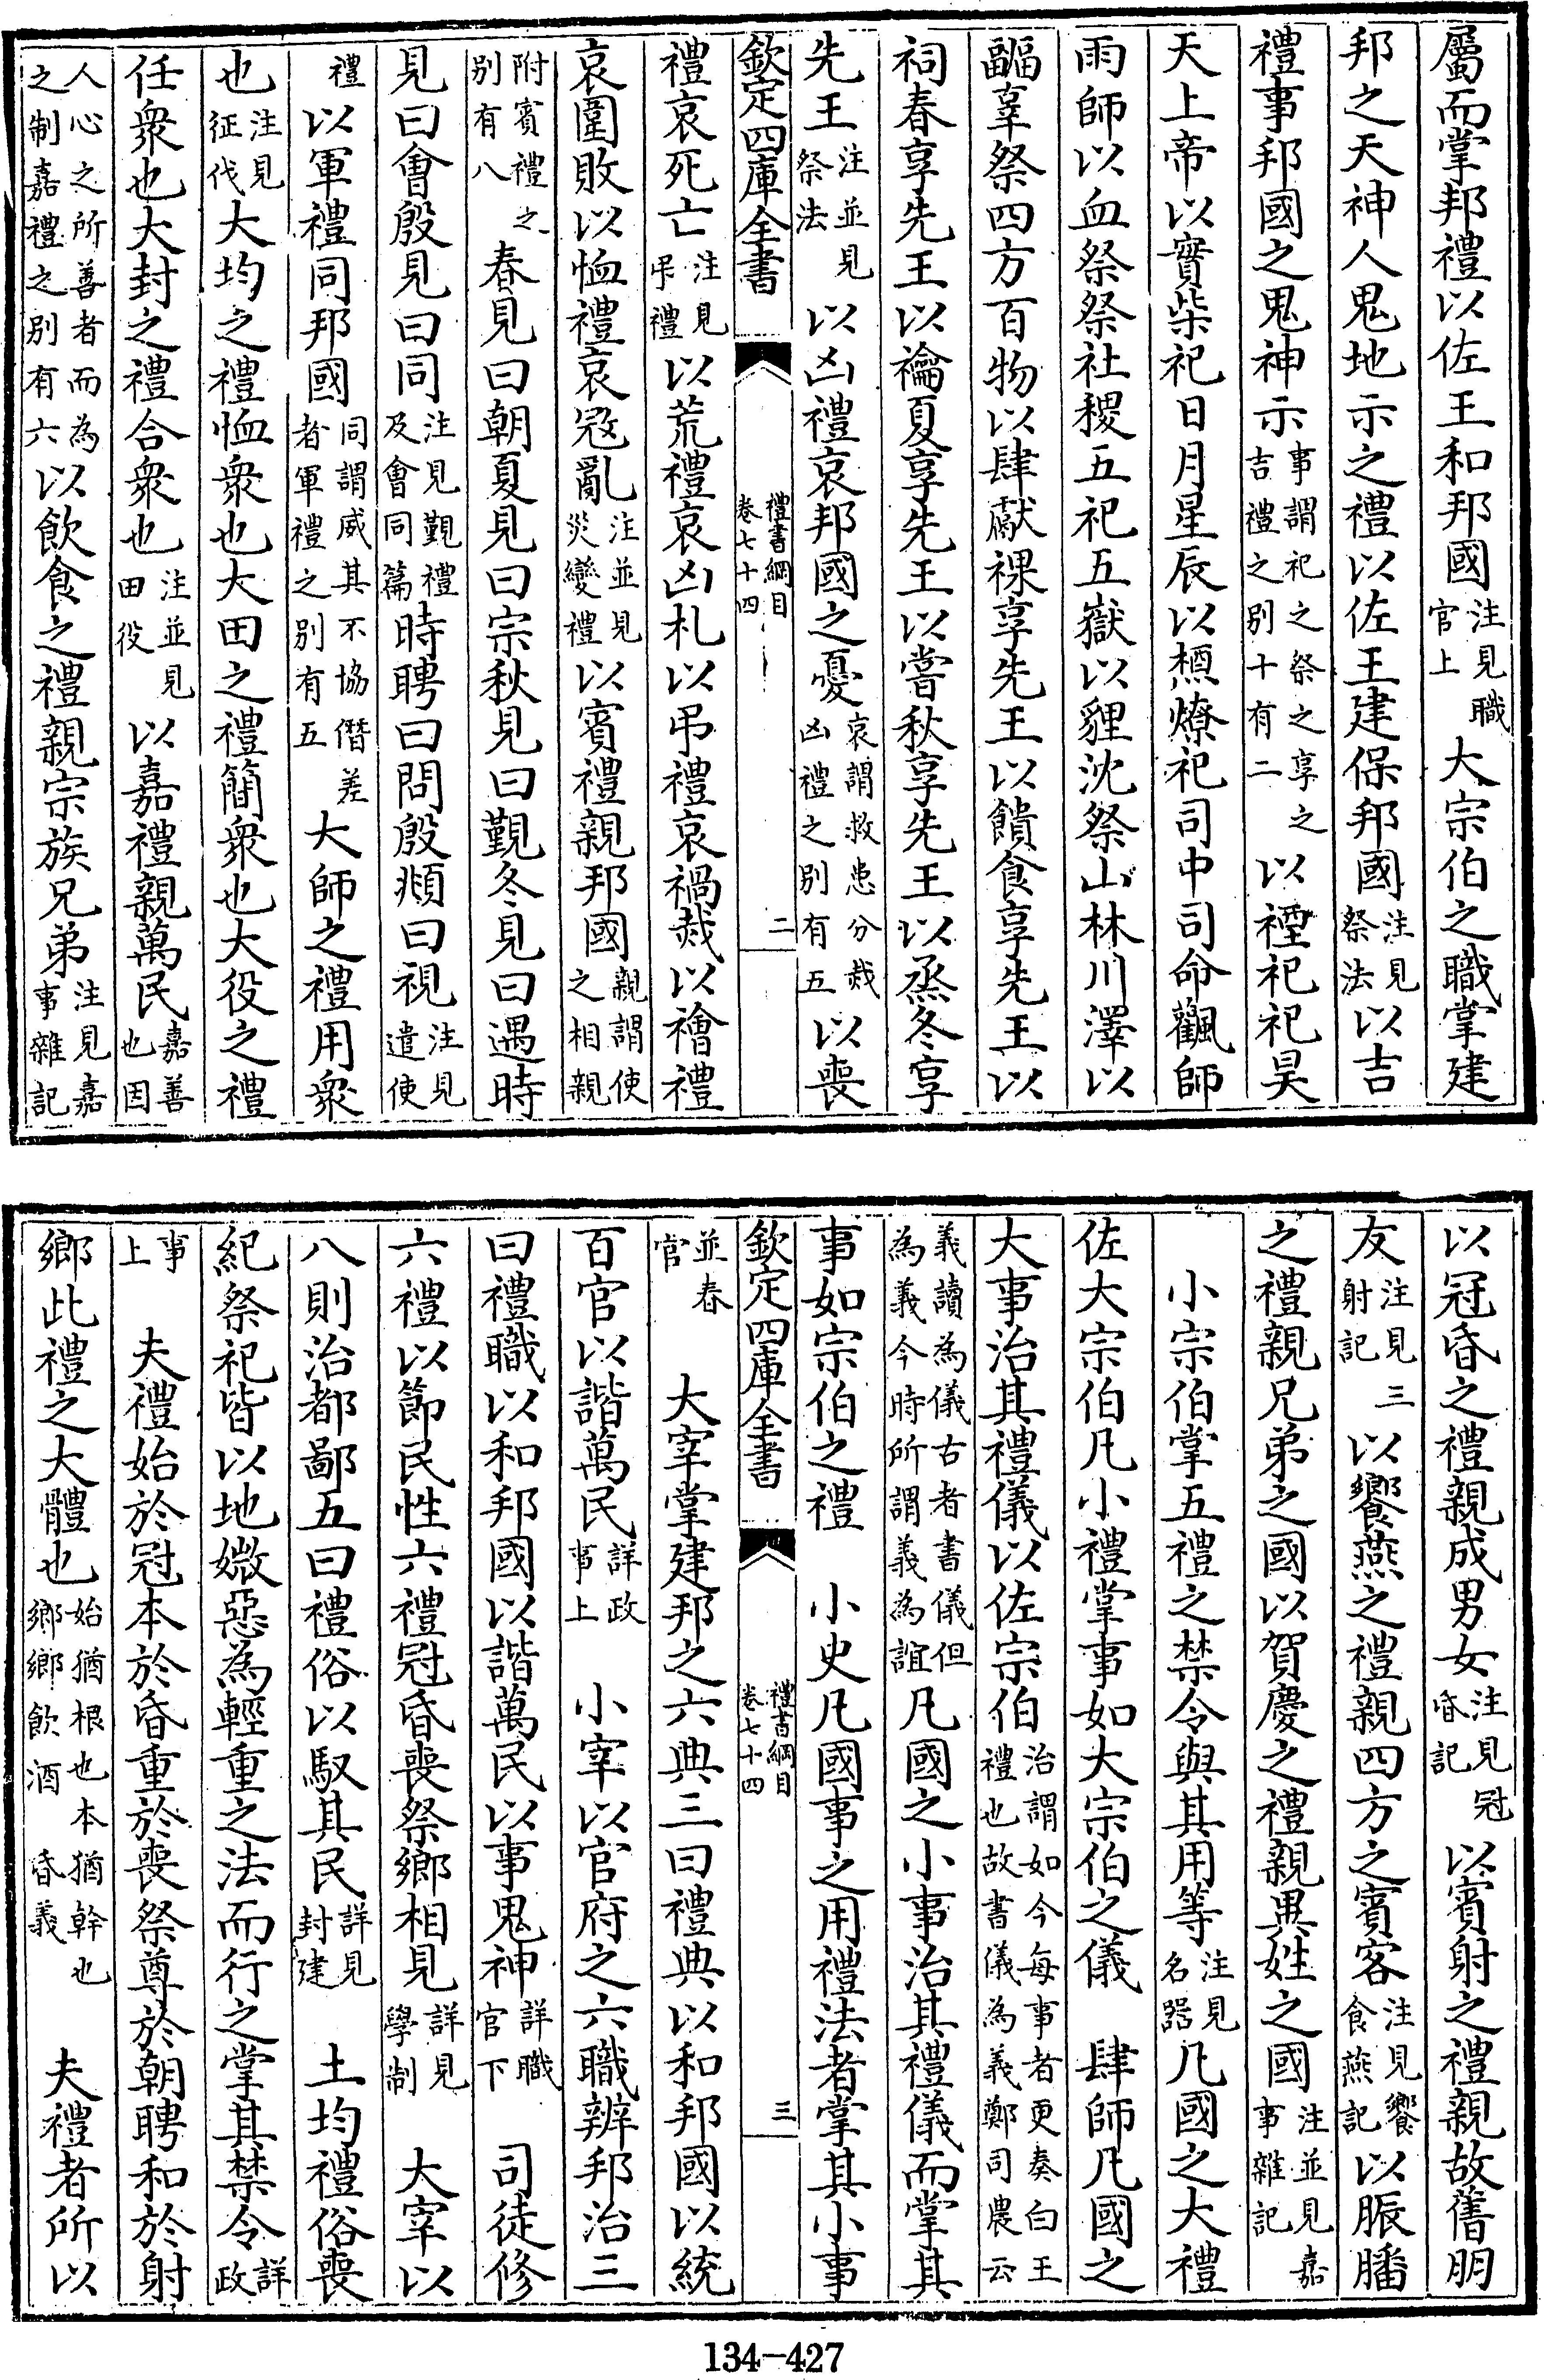 屬而掌邦禮以佐王和邦國注見職官上大宗伯之職掌建
邦之天神人鬼地示之禮以佐王建保邦國注見祭法以吉
禮事邦國之鬼神示事謂祀之祭之享之吉禮之别十有二以禋祀祀昊
天上帝以實柴祀日月星辰以槱燎祀司中司命飌師
雨師以血祭祭社稷五祀五嶽以貍沈祭山林川澤以
疈辜祭四方百物以肆獻祼享先王以饋食享先王以
祠春享先王以禴夏享先王以嘗秋享先王以烝冬享
先王注並見祭法以凶禮哀邦國之憂哀謂救患分烖凶禮之别有五以喪
欽定四庫全書 禮書綱目卷七十四 二
禮哀死亡注見弔禮以荒禮哀凶札以弔禮哀禍烖以禬禮
哀圍敗以恤禮哀寇亂注並見災變禮以賓禮親邦國親謂使之相親
附賓禮之别有八春見曰朝夏見曰宗秋見曰覲冬見曰遇時
見曰會殷見曰同注見覲禮及會同篇時聘曰問殷頫曰視注見遣使
禮以軍禮同邦國同謂威其不協僭差者軍禮之别有五大師之禮用衆
也注見征伐大均之禮恤衆也大田之禮簡衆也大役之禮
任衆也大封之禮合衆也注並見田役以嘉禮親萬民嘉善也因
人心之所善者而為之制嘉禮之别有六以飲食之禮親宗族兄弟注見嘉事雜記
以冠昏之禮親成男女注見冠昏記以賓射之禮親故舊朋
友注見三射記以饗燕之禮親四方之賓客注見饗食燕記以脤膰
之禮親兄弟之國以賀慶之禮親異姓之國注並見嘉事雜記
小宗伯掌五禮之禁令與其用等注見名器凡國之大禮
佐大宗伯凡小禮掌事如大宗伯之儀 肆師凡國之
大事治其禮儀以佐宗伯治謂如今每事者更奏白王禮也故書儀為義鄭司農云
義讀為儀古者書儀但為義今時所謂義為誼凡國之小事治其禮儀而掌其
事如宗伯之禮 小史凡國事之用禮法者掌其小事
欽定四庫全書 禮書綱目卷七十四 三
並春官 大宰掌建邦之六典三曰禮典以和邦國以統
百官以諧萬民詳政事上 小宰以官府之六職辨邦治三
曰禮職以和邦國以諧萬民以事鬼神詳職官下 司徒修
六禮以節民性六禮冠昏喪祭鄉相見詳見學制 大宰以
八則治都鄙五曰禮俗以馭其民詳見封建 土均禮俗喪
紀祭祀皆以地媺惡為輕重之法而行之掌其禁令詳政
事上 夫禮始於冠本於昏重於喪祭尊於朝聘和於射
鄉此禮之大體也始猶根也本猶幹也鄉鄉飲酒 昏義 夫禮者所以
134-427